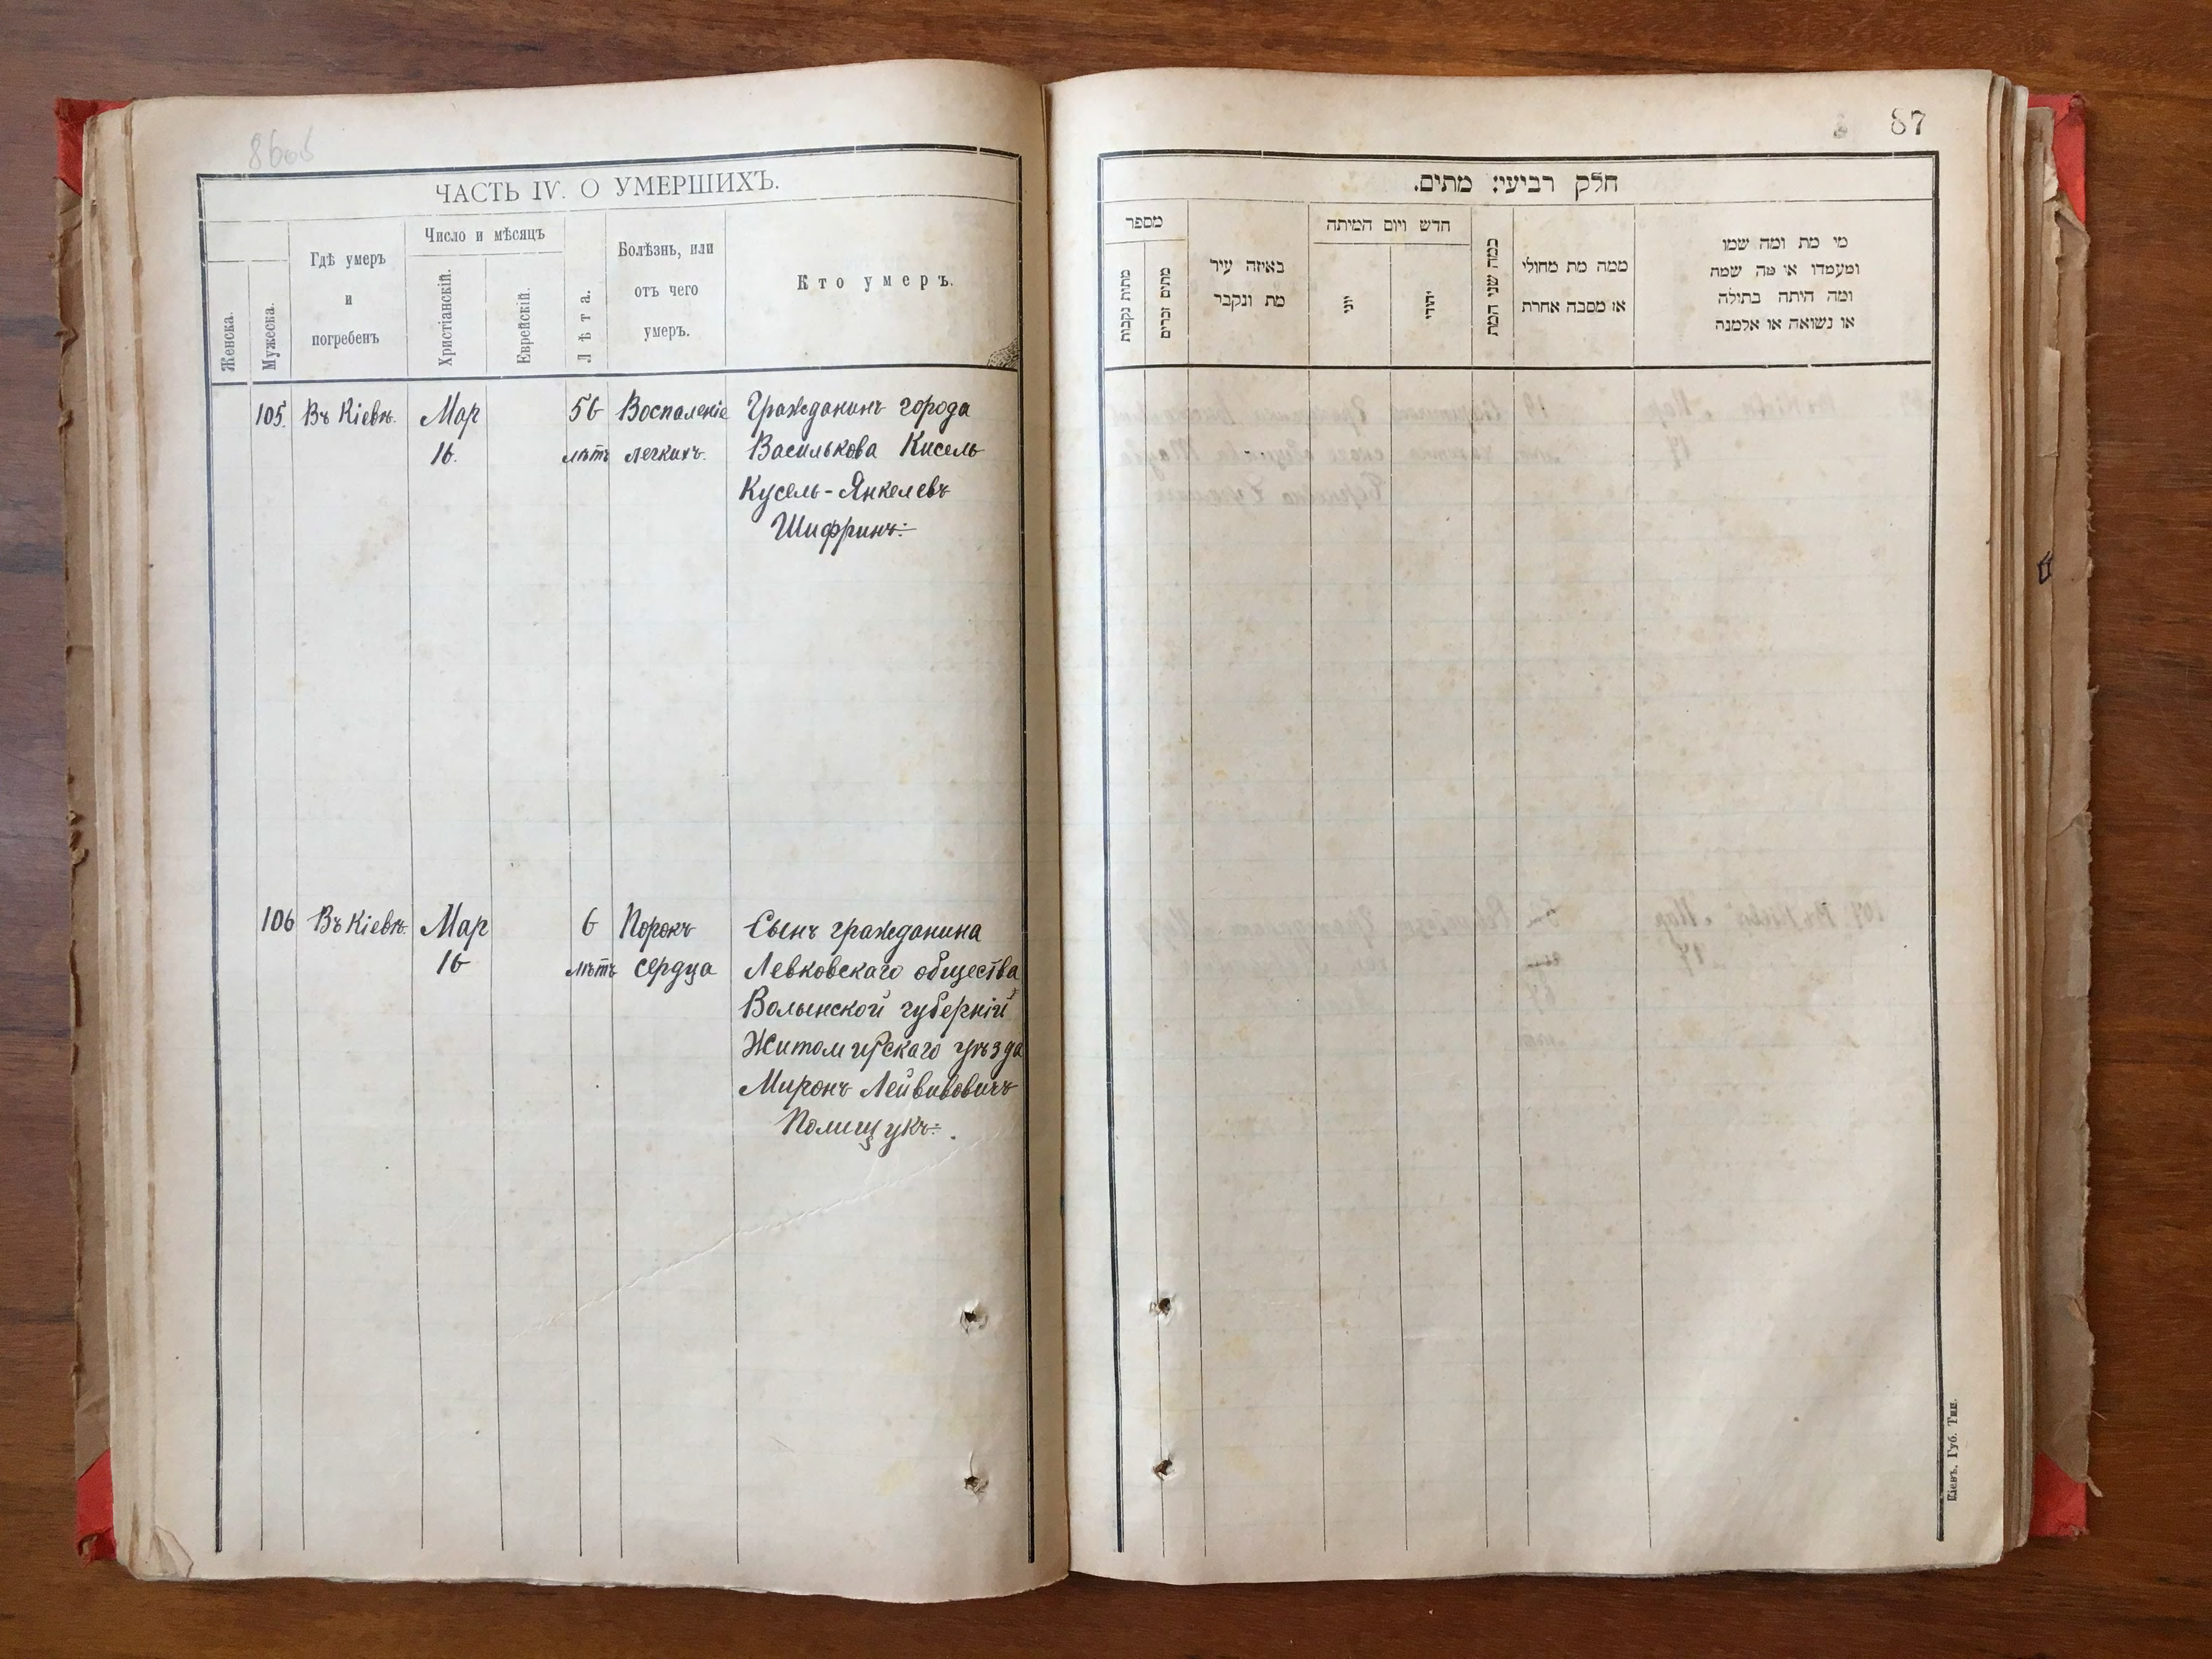 86об
ЧАСТЬ IV. О УМЕРШИХЪ.
Женска.
Мужеска.
Гдѣ умеръ
и
погребенъ
Число и мѣсяцъ
Христіанскій.
Еврейскій.
Лѣта.
Болѣзнь, или
отъ чего
умеръ.
Кто умеръ.
105. Въ Кіевѣ. Мар 56 Воспаленіе Гражданинъ города
16. лѣтъ легкихъ. Василькова Кисель
Кусель-Янкелевъ
Шифринъ
106 Въ Кіевѣ. Мар 6 Порокъ Сынъ гражданина
16 лѣтъ сердца Левковскаго общества
Волынской губерній
Житомирскаго уѣзда
Миронъ Лейвиковичъ
Полищукъ
87
חלק רביעי: מתים.
מספר
מתות נקבות
מתים זכרים
באיזה עיר
מת ונקבר
חדש ויום המיתה
יוני
יהודי
כמה שני המת
ממה מת מחולי
או מסבה אחרת
מי מת ומה שמו
ומעמדו או מה שמה
ומה היתה בתולה
או נשואה או אלמנה
Кіевъ. Губ. Тип.